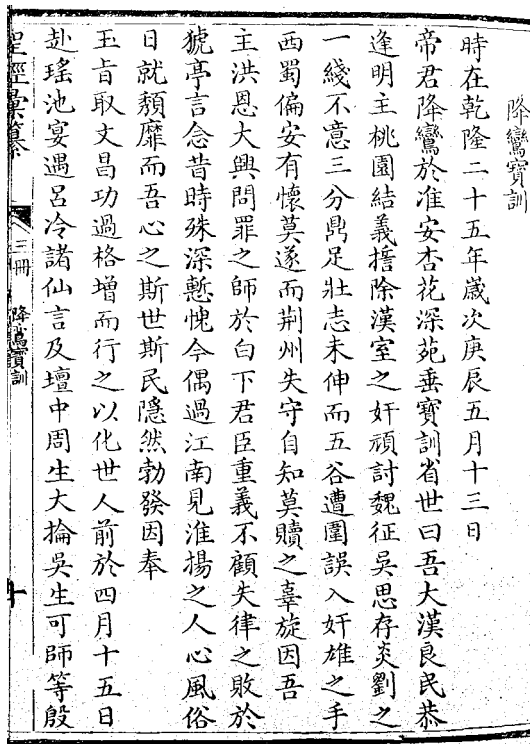 降鸞寶訓
時在乾隆二十五年歲次庚辰五月十三日
帝君降鸞於淮安杏花深苑垂寶訓省世曰吾大漢良民恭
逢明主桃園結義擔除漢室之奸頑討魏征吳思存炎劉之
一綫不意三分鼎足壯志未伸而五谷遭圍誤入奸雄之手
西蜀偏安有懷莫遂而荆州失守自知莫贖之辜旋因吾
主洪恩大興問罪之師於白下君臣重義不顧失律之敗於
猇亭言念昔時殊深慙愧今偶過江南見淮揚之人心風俗
日就頹靡而吾心之斯世斯民隱然勃發因奉
玉旨取文昌功過格增而行之以化世人前於四月十五日
赴瑤池宴遇呂冷諸仙言及壇中周生大掄吳生可師等殷
聖經彙纂
三冊
降鸞寶訓
十